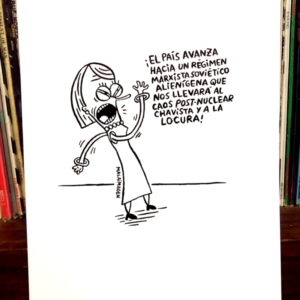 ¡EL PAÍS AVANZA
HACIA UN RÉGIMEN
MARXISTA SOVIÉTICO
ALIENÍGENA QUE
NOS LLEVARÁ AL
CAOS POST-NUCLEAR
CHAVISTA Y A LA
LOCURA!
MALAIMAGEN